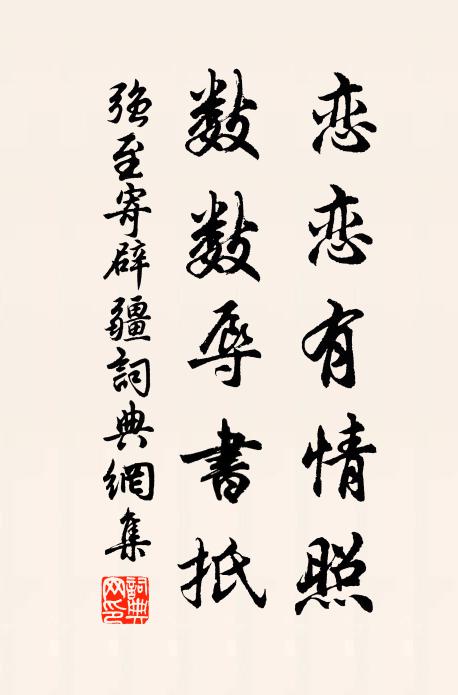 恋恋有情照
数数辱書抵
強至寄辟疆詞典網集
詞典网印